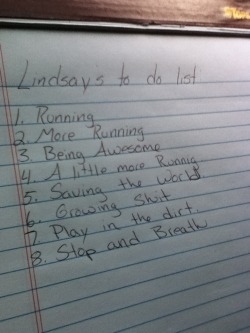 Lindsay's to do list
1. Running
2. More Running
3. Being Awesome
4. A little more Runnig
5. Saving the World
6. Growing Shit
7. Play in the dirt.
8. Stop and Breath